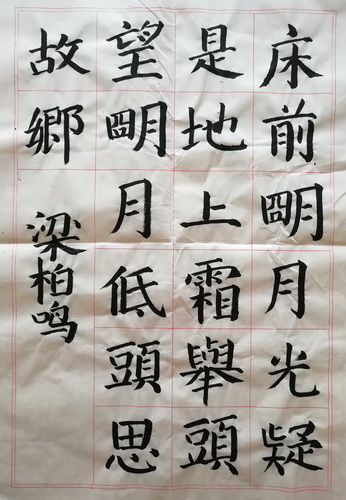 床前朙月光疑
是地上霜舉頭
望朙月低頭思
故鄉
梁柏鸣